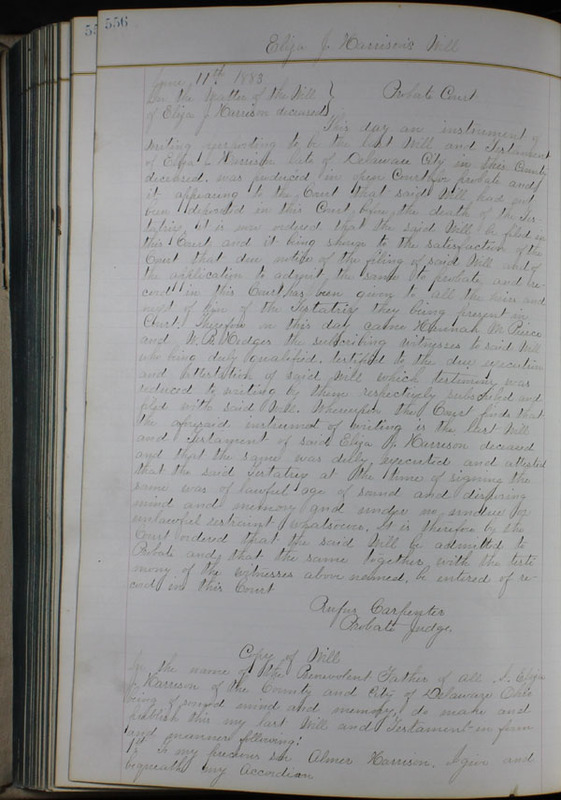 55 556
Eliza J. Harrison's Will
June 11th 1883
In the Matter of the Will } Probate Court
of Eliza J Harrison deceased }
This day an instrument of
writing purporting to be the last Will and Testament
of Eliza J Harrison late of Delaware City in this County
deceased, was produced in open Court for probate and
it appearing to the Court that said Will had not
been deposited in this Court before the death of the Tes-
tatrix, it is now ordered that the said Will be filed in
this Court and it being shown to the satisfaction of the
Court that due notice of the filing of said Will and of
the application to admit the same to probate and re-
cord in this Court has been given to all the heirs and
next of kin of the Testatrix they being present in
Court. Therefore on this day came Hannah M Pierce
and W. B. Hedges the subscribing witnesses to said Will
who being duly qualified, testified to the due execution
and attestation of said Will which testimony was
reduced to writing by them respectively subscribed and
filed with said Will. Whereupon the Court finds that
the aforesaid instrument of writing is the last Will
and Testament of said Eliza J. Harrison deceased
and that the same was dully executed and attested
that the said Testatrix at the time of signing the
same was of lawful age of sound and disposing
mind and memory and under no undue or
unlawful restraint whatsoever. It is therefore by the
Court ordered that the said Will be admitted to
Probate and that the same together with the testi
mony of the witnesses above named, be entered of re-
cord in this Court
Rufus Carpenter
Probate Judge.
Copy of Will
In the name of the Benevolent Father of all I, Eliza
J. Harrison of the County and City of Delaware Ohio
being of sound mind and memory, do make and
publish this my last Will and Testament in form
and manner following:
1st To my precious son Almer Harrison, I give and
bequeath my Accordion